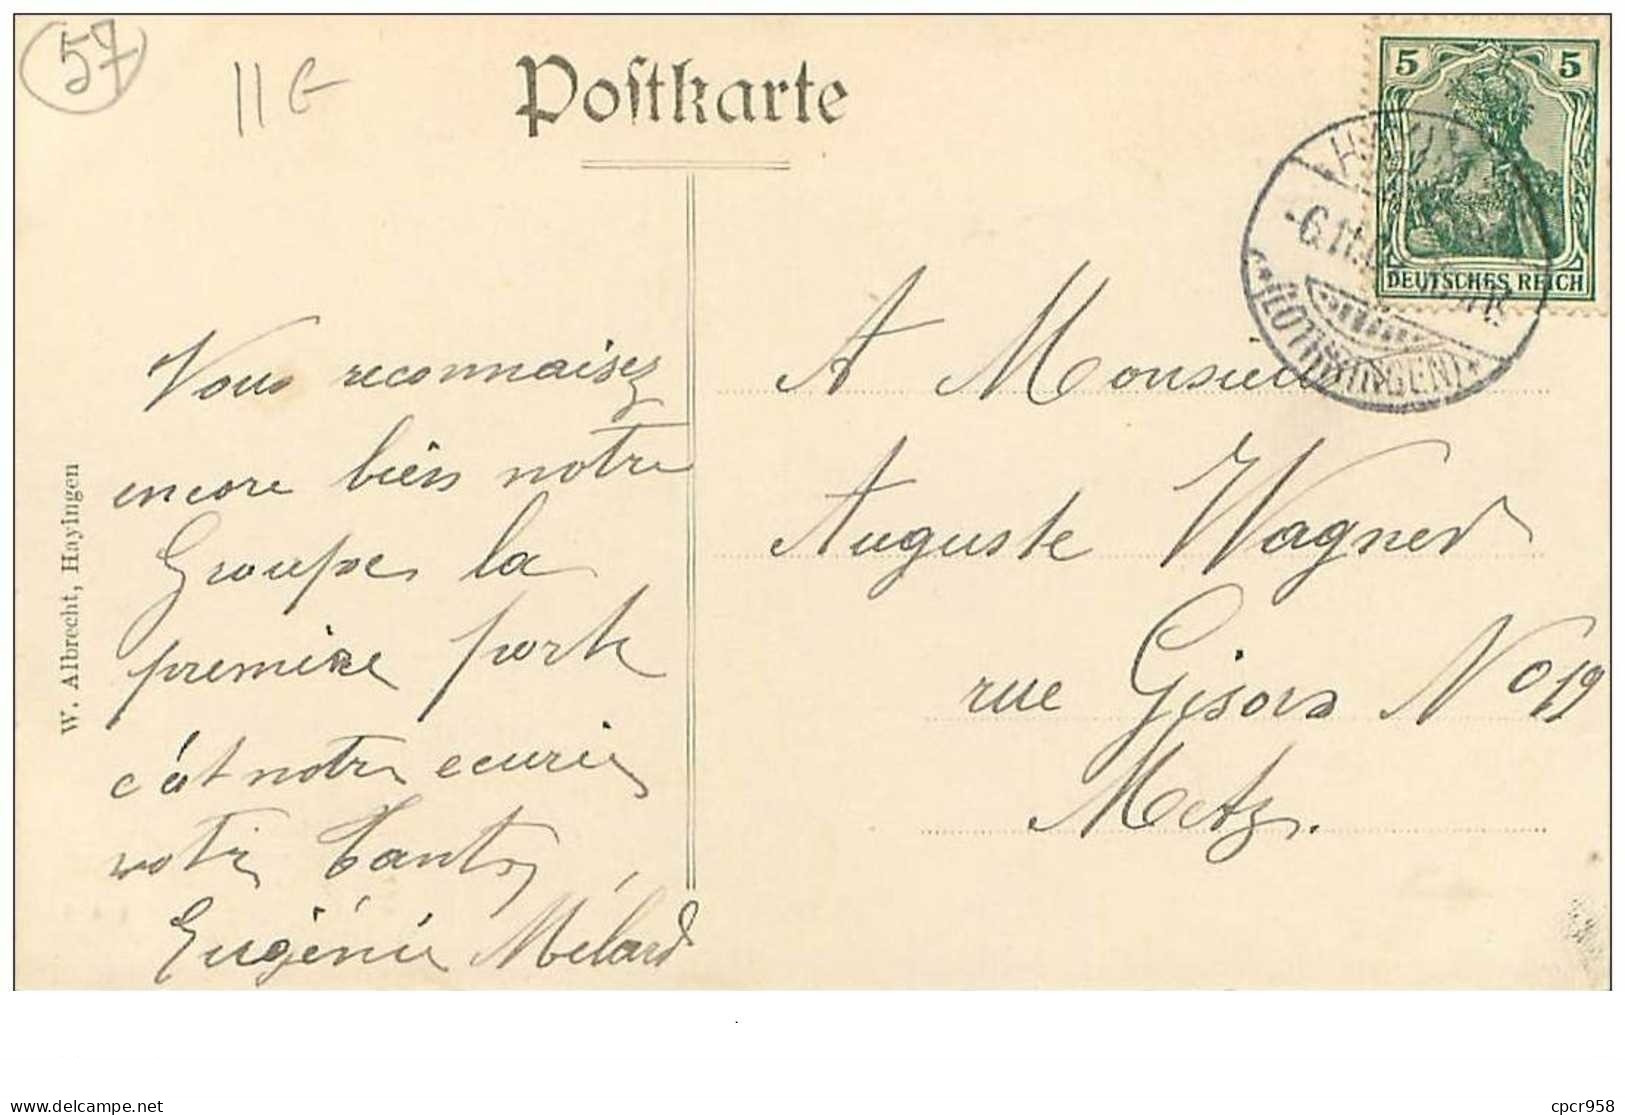 57
11 €
Postkarte
5 5
DEUTSCHES REICH
-6.11.
(LOTHRINGEN)
W. Albrecht, Hayingen
Vous reconnaisez
encore bien notre
Groupe la
premiere porte
c'est notre ecurie
votre Tante
Eugénie Mélard
A Monsieur
Auguste Wagner
rue Gisors No 19
Metz.
www.delcampe.net
cpcr958